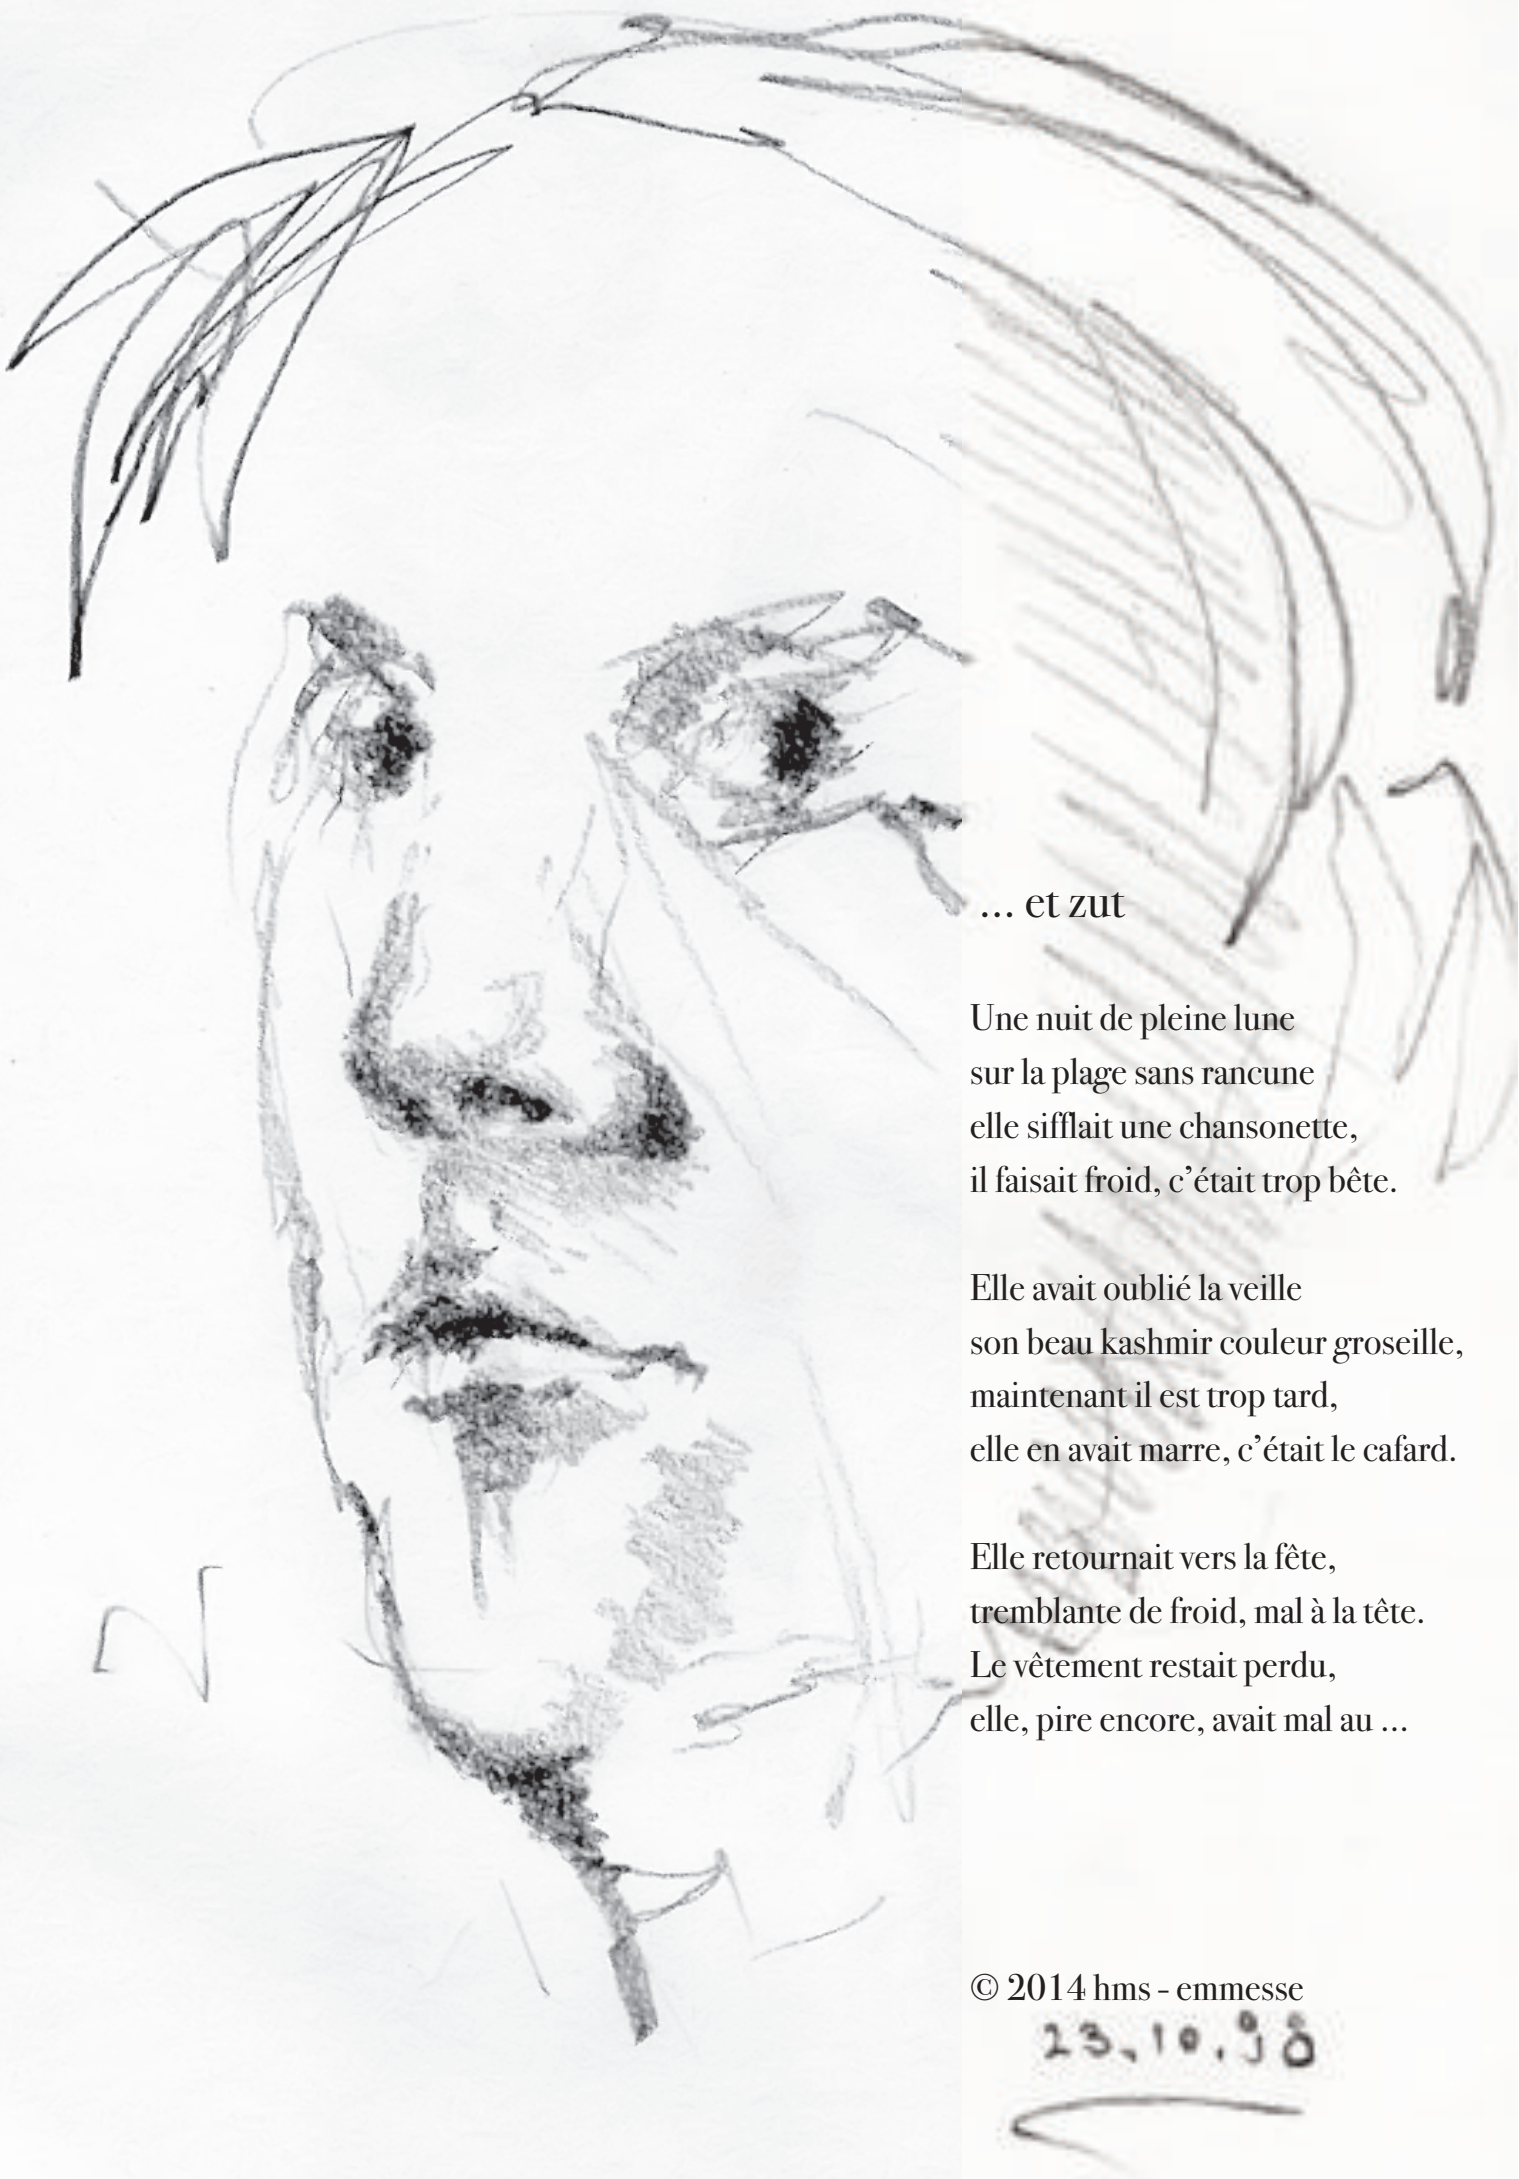 ... et zut
Une nuit de pleine lune
sur la plage sans rancune
elle sifflait une chansonette,
il faisait froid, c’était trop bête.
Elle avait oublié la veille
son beau kashmir couleur groseille,
maintenant il est trop tard,
elle en avait marre, c’était le cafard.
Elle retournait vers la fête,
tremblante de froid, mal à la tête.
Le vêtement restait perdu,
elle, pire encore, avait mal au ...
© 2014 hms - emmesse
23.10.98